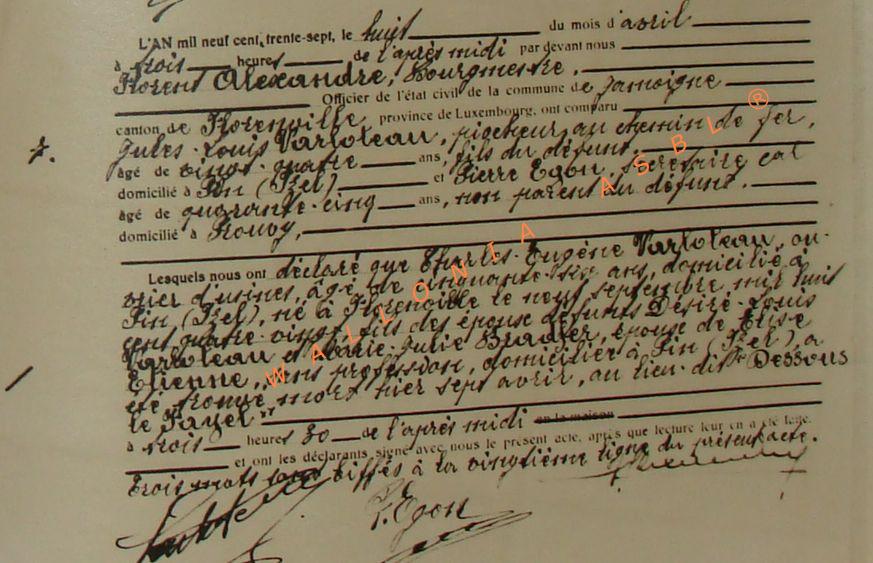 L'AN mil neuf cent, trente-sept, le huit du mois d'avril
à trois heures de l'après midi par devant nous
Florent Alexandre, Bourgmestre,
Officier de l'état civil de la commune de Jamoigne
canton de Florenville province de Luxembourg, ont comparu
Jules-Louis Varloteau, piocheur au chemin de fer,
âgé de vingt-quatre ans, fils du défunt,
domicilié à Pin (Izel) et Pierre Egon, secrétaire cal
âgé de quarante-cinq ans, non parent du défunt,
domicilié à Prouvy,
Lesquels nous ont déclaré que Charles-Eugène Varloteau, ou-
vrier d'usines, âgé de cinquante-six ans, domicilié à
Pin (Izel), né à Florenville le neuf septembre mil huit
cent quatre-vingt, fils des époux défunts Désiré-Louis
Varloteau et Marie-Julie Bradfer, époux de Elise
Etienne, sans profession, domiciliée à Pin (Izel), a
été trouvé mort hier sept avril, au lieu-dit "Dessous
le Fayel"
à trois heures 30 de l'après midi en la maison
et ont les déclarants signé avec nous le présent acte, après que lecture leur en a été faite.
Trois mots sont biffés à la vingtième ligne du présent acte.
P. Egon
WALLONIA ASBL ®